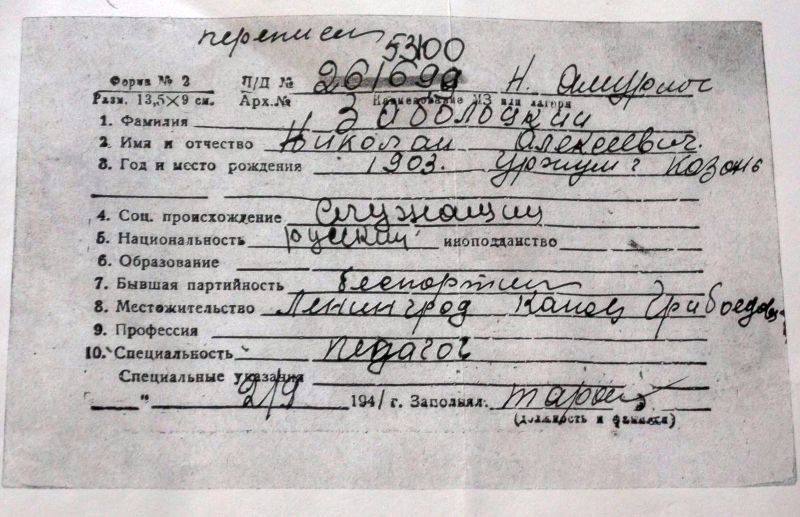 переписан
53100
Форма № 2 П/Д № 261699 Н. Амурлаг
Разм. 13,5×9 см. Арх.№ Наименование МЗ или лагеря
1. Фамилия Заболоцкий
2. Имя и отчество Николай Алексеевич.
3. Год и место рождения 1903. Уржум г Казань
4. Соц. происхождение Служащий
5. Национальность русский иноподданство
6. Образование
7. Бывшая партийность беспартийн
8. Местожительство Ленинград Канал Грибоедова
9. Профессия
10. Специальность педагог
Специальные указания
" 2/9 1941 г. Заполнял:
(должность и фамилия)